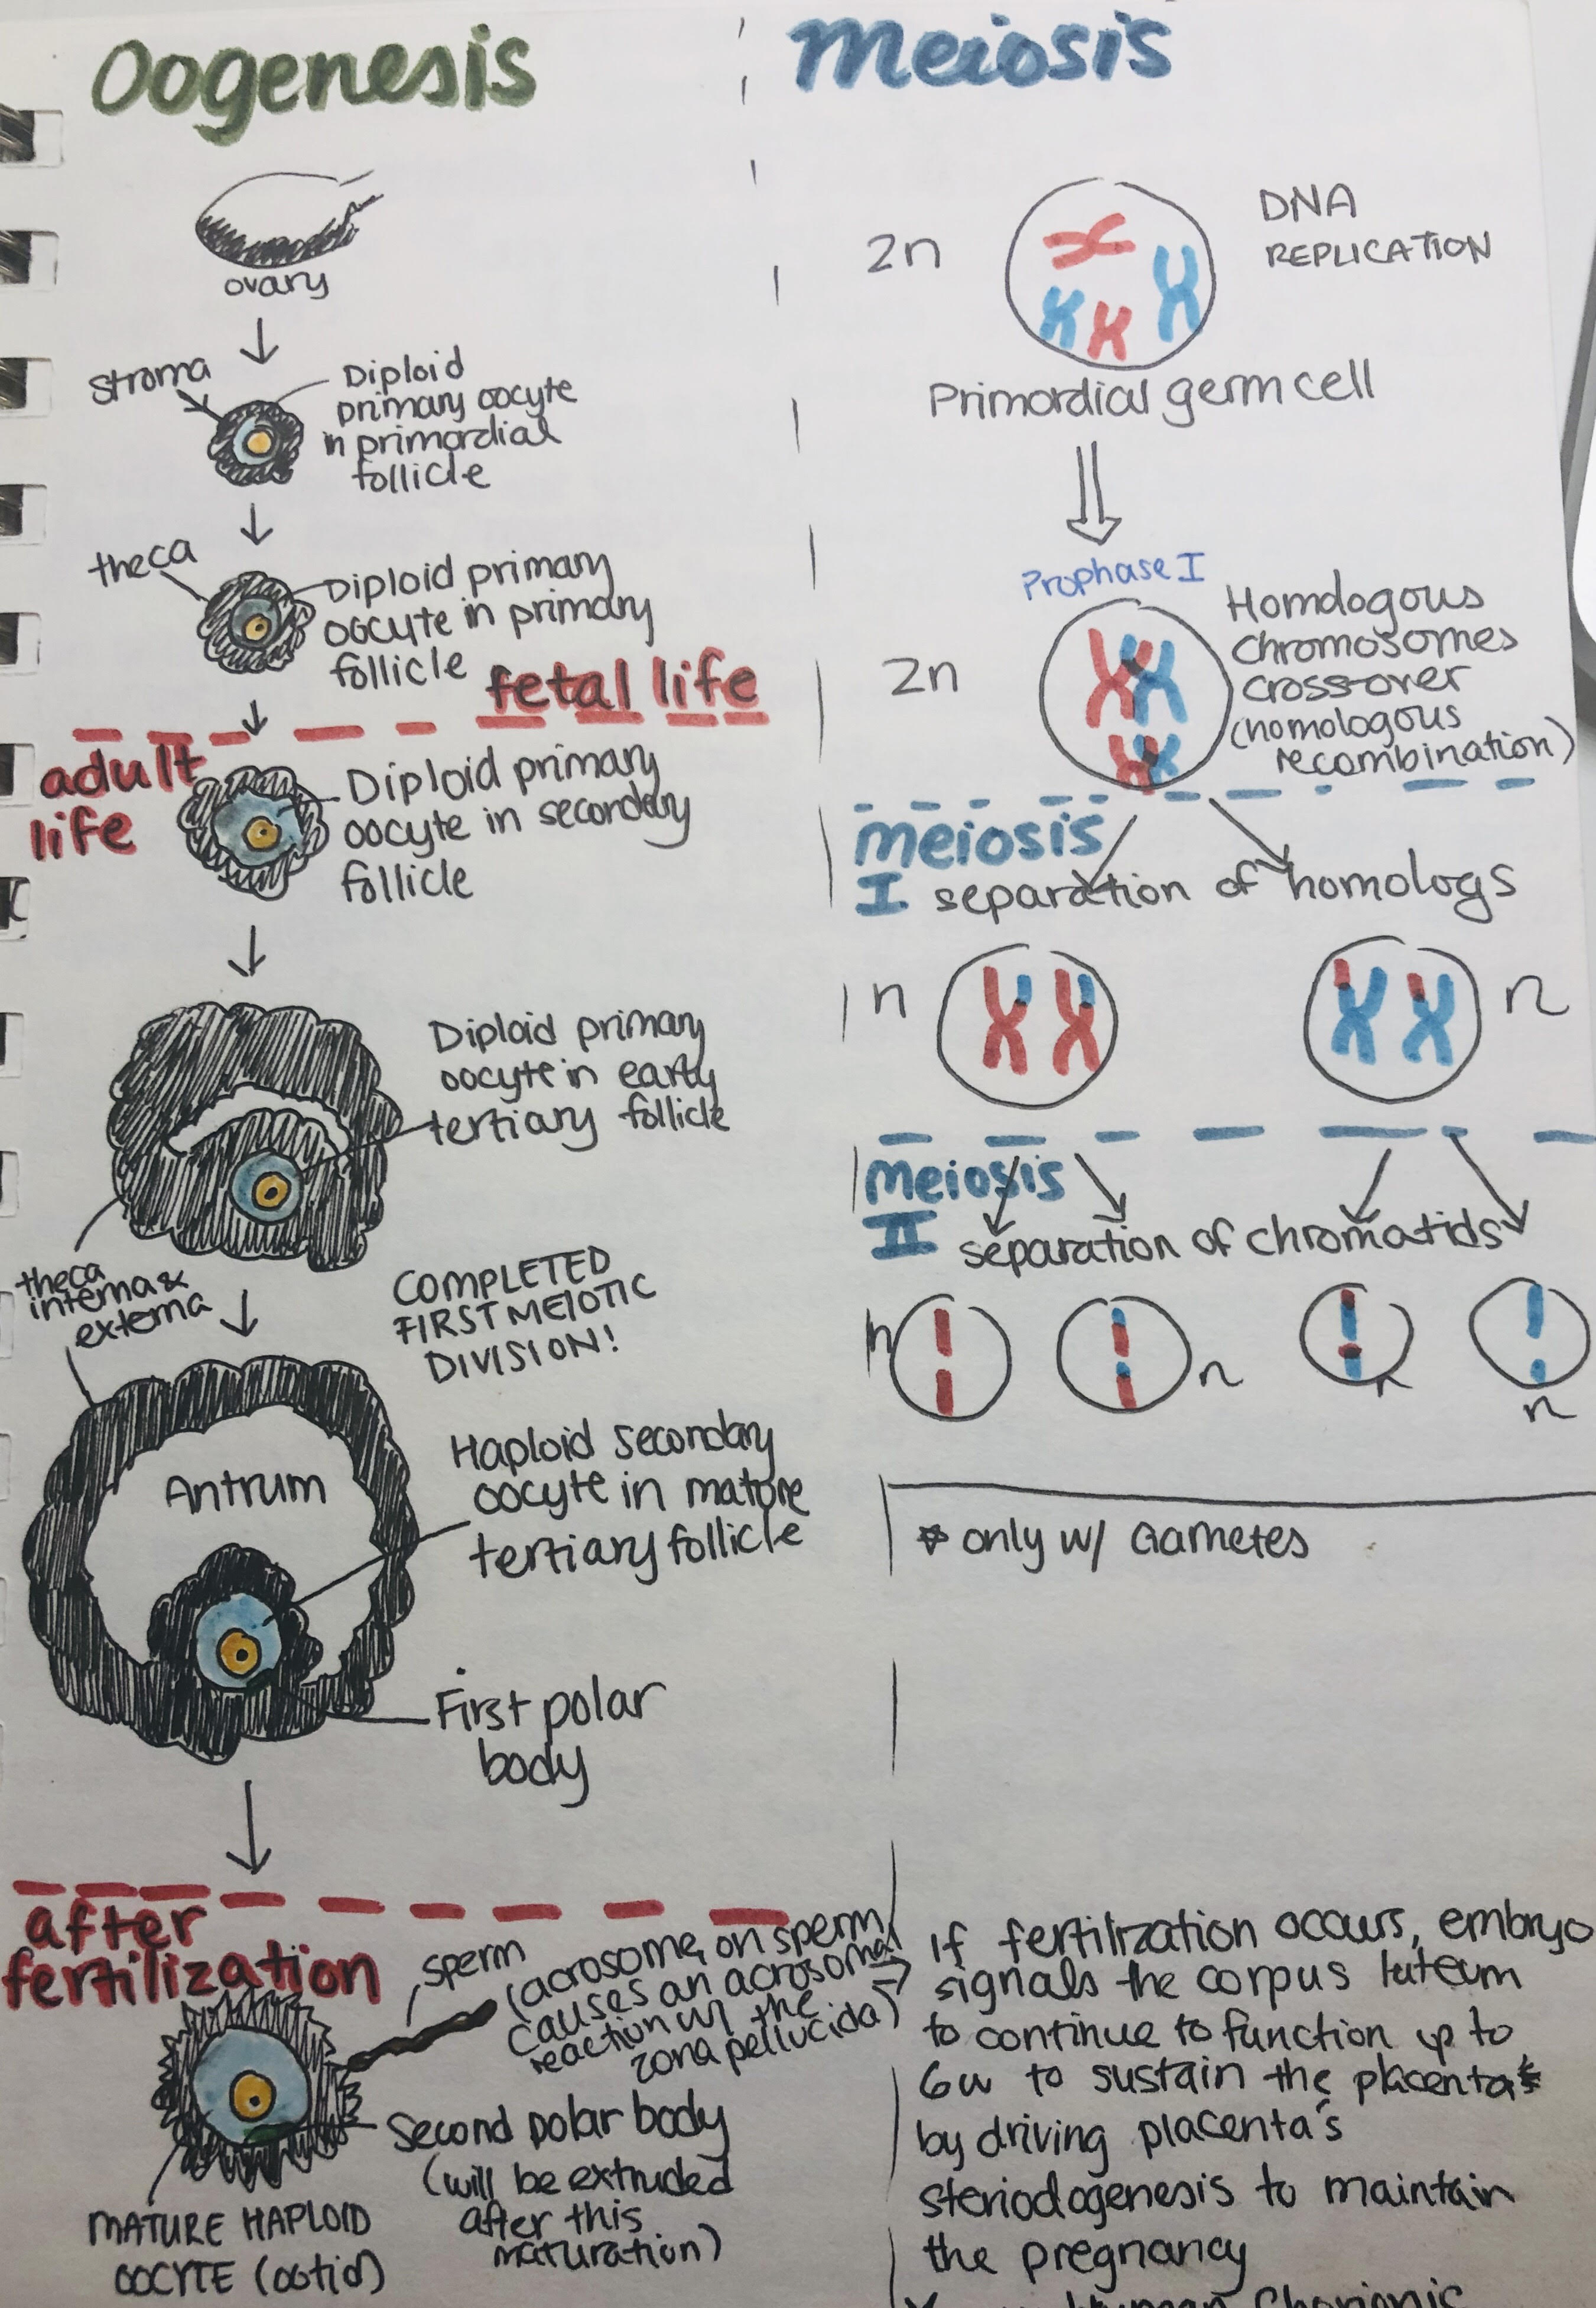 Oogenesis
ovary
stroma
Diploid
primary oocyte
in primordial
follicle
theca
Diploid primary
oocyte in primary
follicle
fetal life
adult
life
Diploid primary
oocyte in secondary
follicle
Diploid primary
oocyte in early
tertiary follicle
theca
interna &
externa
COMPLETED
FIRST MEIOTIC
DIVISION!
Antrum
Haploid secondary
oocyte in mature
tertiary follicle
First polar
body
after
fertilization
sperm
(acrosome on sperm
causes an acrosomal
reaction w/ the
zona pellucida)
Second polar body
(will be extruded
after this
maturation)
MATURE HAPLOID
OOCYTE (ootid)
Meiosis
2n
DNA
REPLICATION
Primordial germ cell
Prophase I
2n
Homologous
chromosomes
cross-over
(homologous
recombination)
meiosis
I separation of homologs
n
n
meiosis
II separation of chromatids
n
n
n
n
* only w/ Gametes
→ If fertilization occurs, embryo
signals the corpus luteum
to continue to function up to
6w to sustain the placenta
by driving placenta's
steriodogenesis to maintain
the pregnancy
Human Chorionic